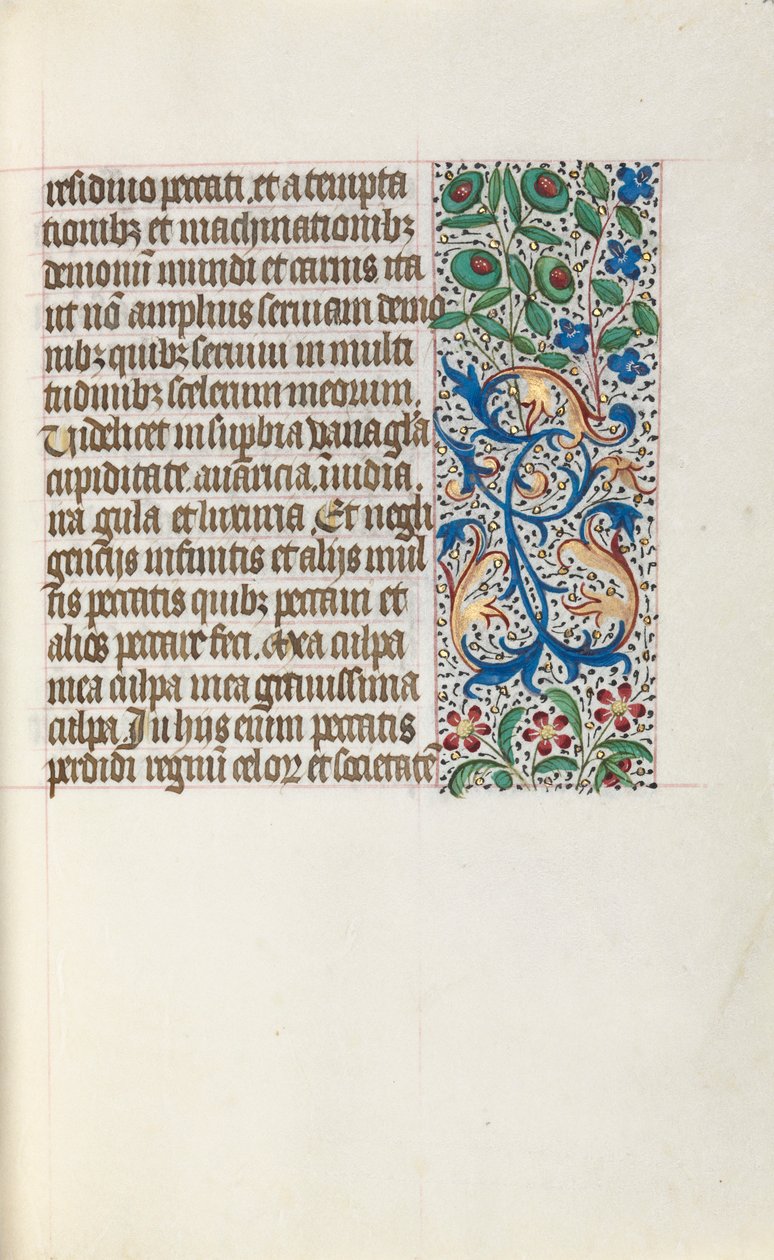 residuo peccati. et a tempta
tionibꝫ et machinationibꝫ
demonū mundi et carnis ita
ut nō amplius seruiam demo
nibꝫ quibꝫ seruiui in multi
tudinibꝫ scelerum meorum.
Videlicet in superbia vana gl̄a
cupiditate. auaricia. īuidia.
ira gula et luxuria Et negli
gencijs infinitis et alijs mul
tis peccatis quibꝫ peccaui et
alios peccare feci. Mea culpa
mea culpa mea grauissima
culpa. In hijs enim peccatis
perdidi regnū celoꝝ et societatē